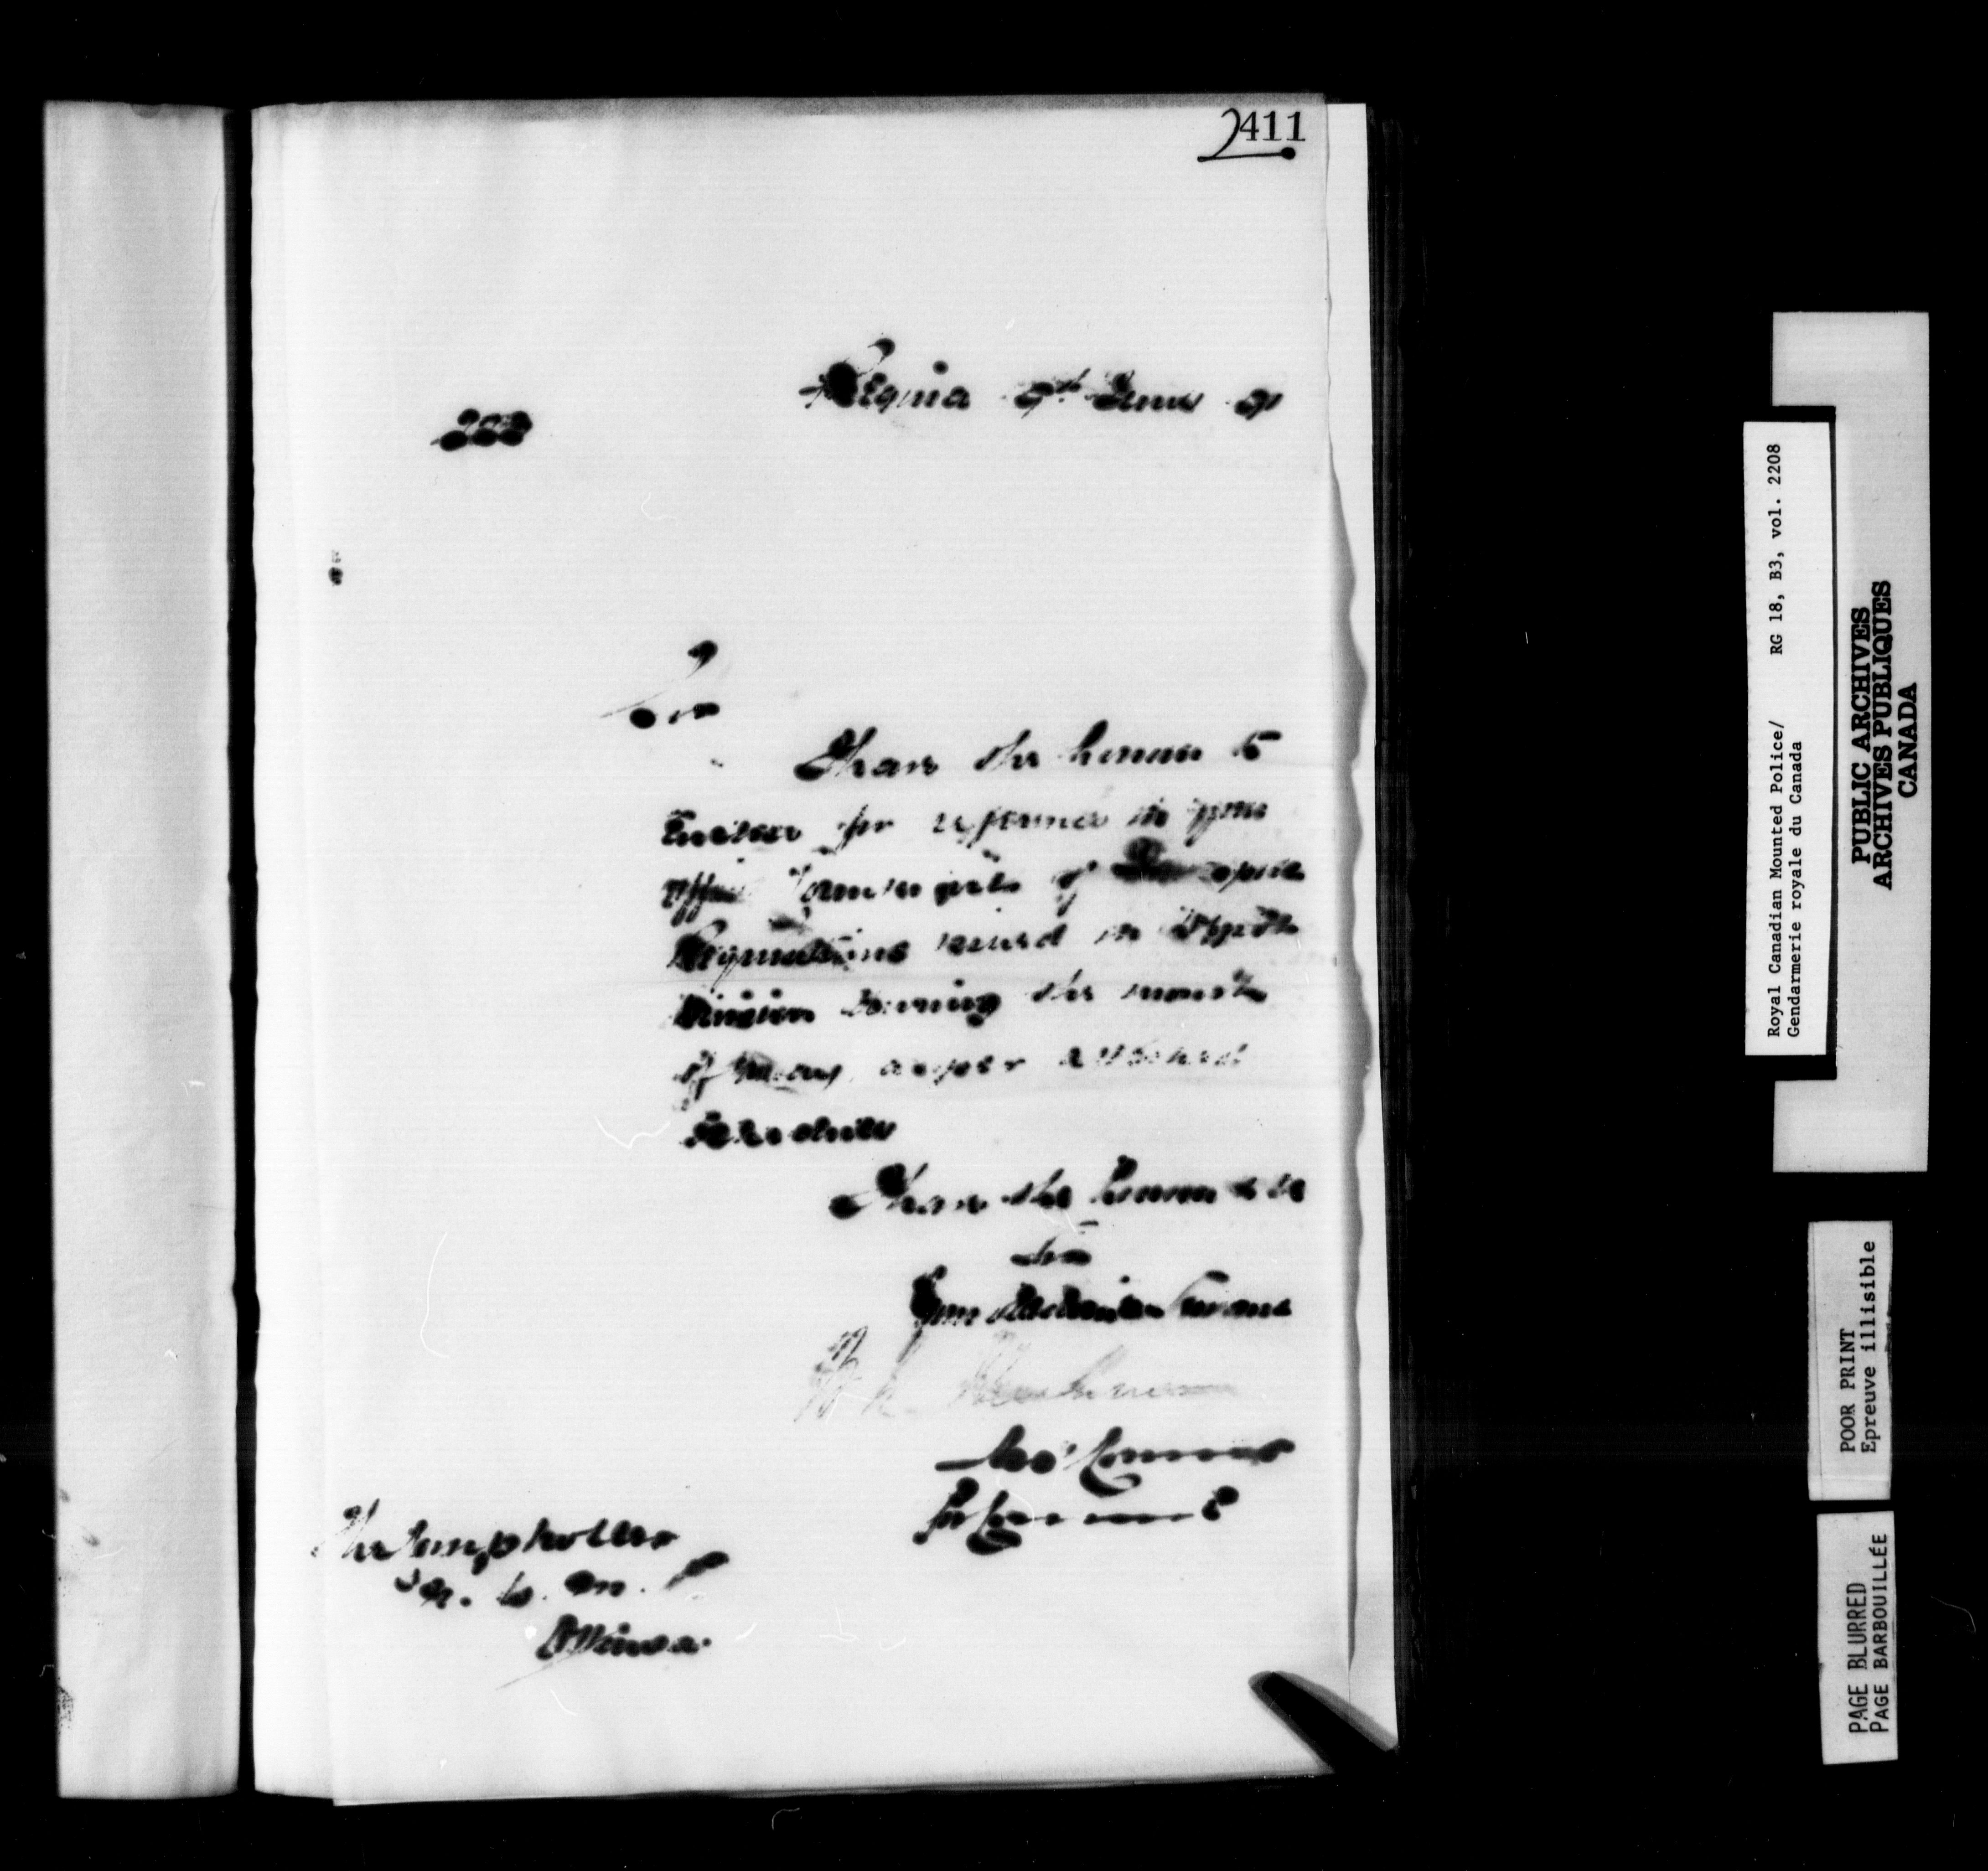 2411
Regina 9th June 91
Sir
I have the honour to
Enclose for reference in your
office of
Requisitions issued in Depot
Division during the month
of May as per attached
Schedule
I have the honour to be
Sir
Your obedient Servant
Asst Commr
for Commr
The Comptroller
N. W. M. P
Ottawa.
Royal Canadian Mounted Police/ RG 18, B3, vol. 2208
Gendarmerie royale du Canada
PUBLIC ARCHIVES
ARCHIVES PUBLIQUES
CANADA
POOR PRINT
Epreuve illisible
PAGE BLURRED
PAGE BARBOUILLÉE